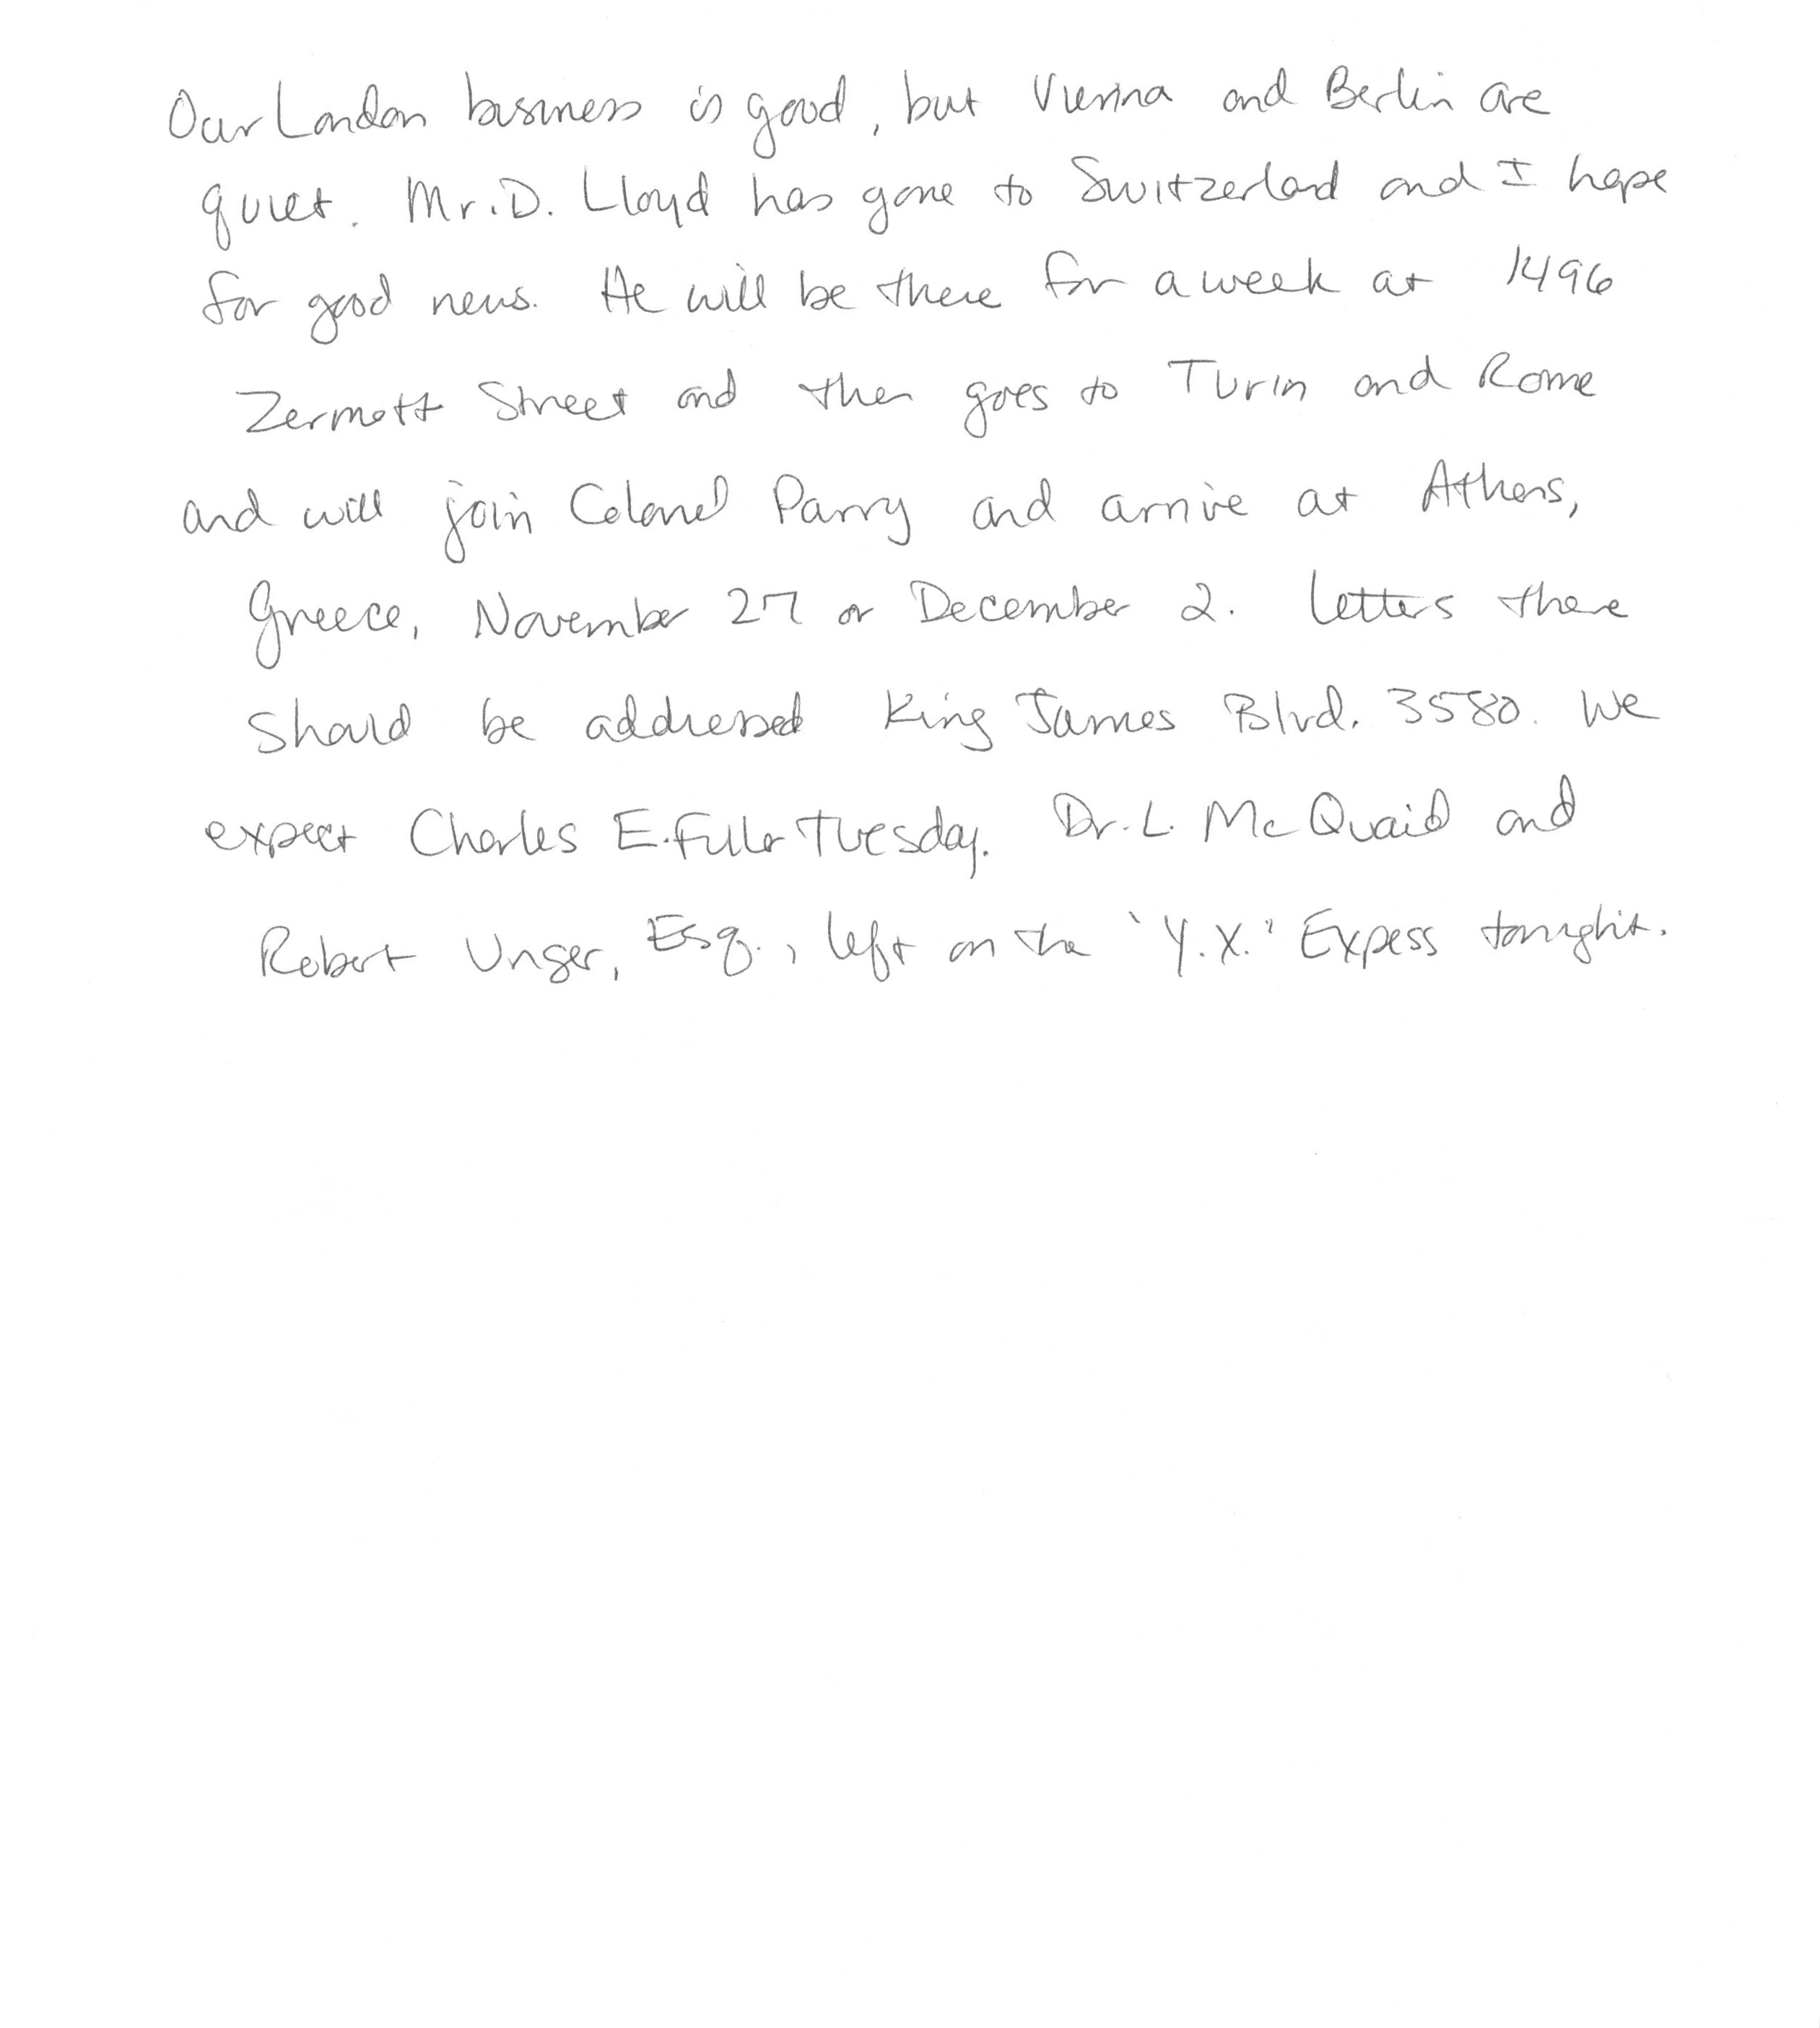 Our London business is good, but Vienna and Berlin are
quiet. Mr. D. Lloyd has gone to Switzerland and I hope
for good news. He will be there for a week at 1496
Zermott Street and then goes to Turin and Rome
and will join Colonel Parry and arrive at Athens,
Greece, November 27 or December 2. Letters there
should be addressed King James Blvd. 3580. We
expect Charles E. Fuller Tuesday. Dr. L. McQuaid and
Robert Unger, Esq., left on the 'Y.X.' Expess tonight.